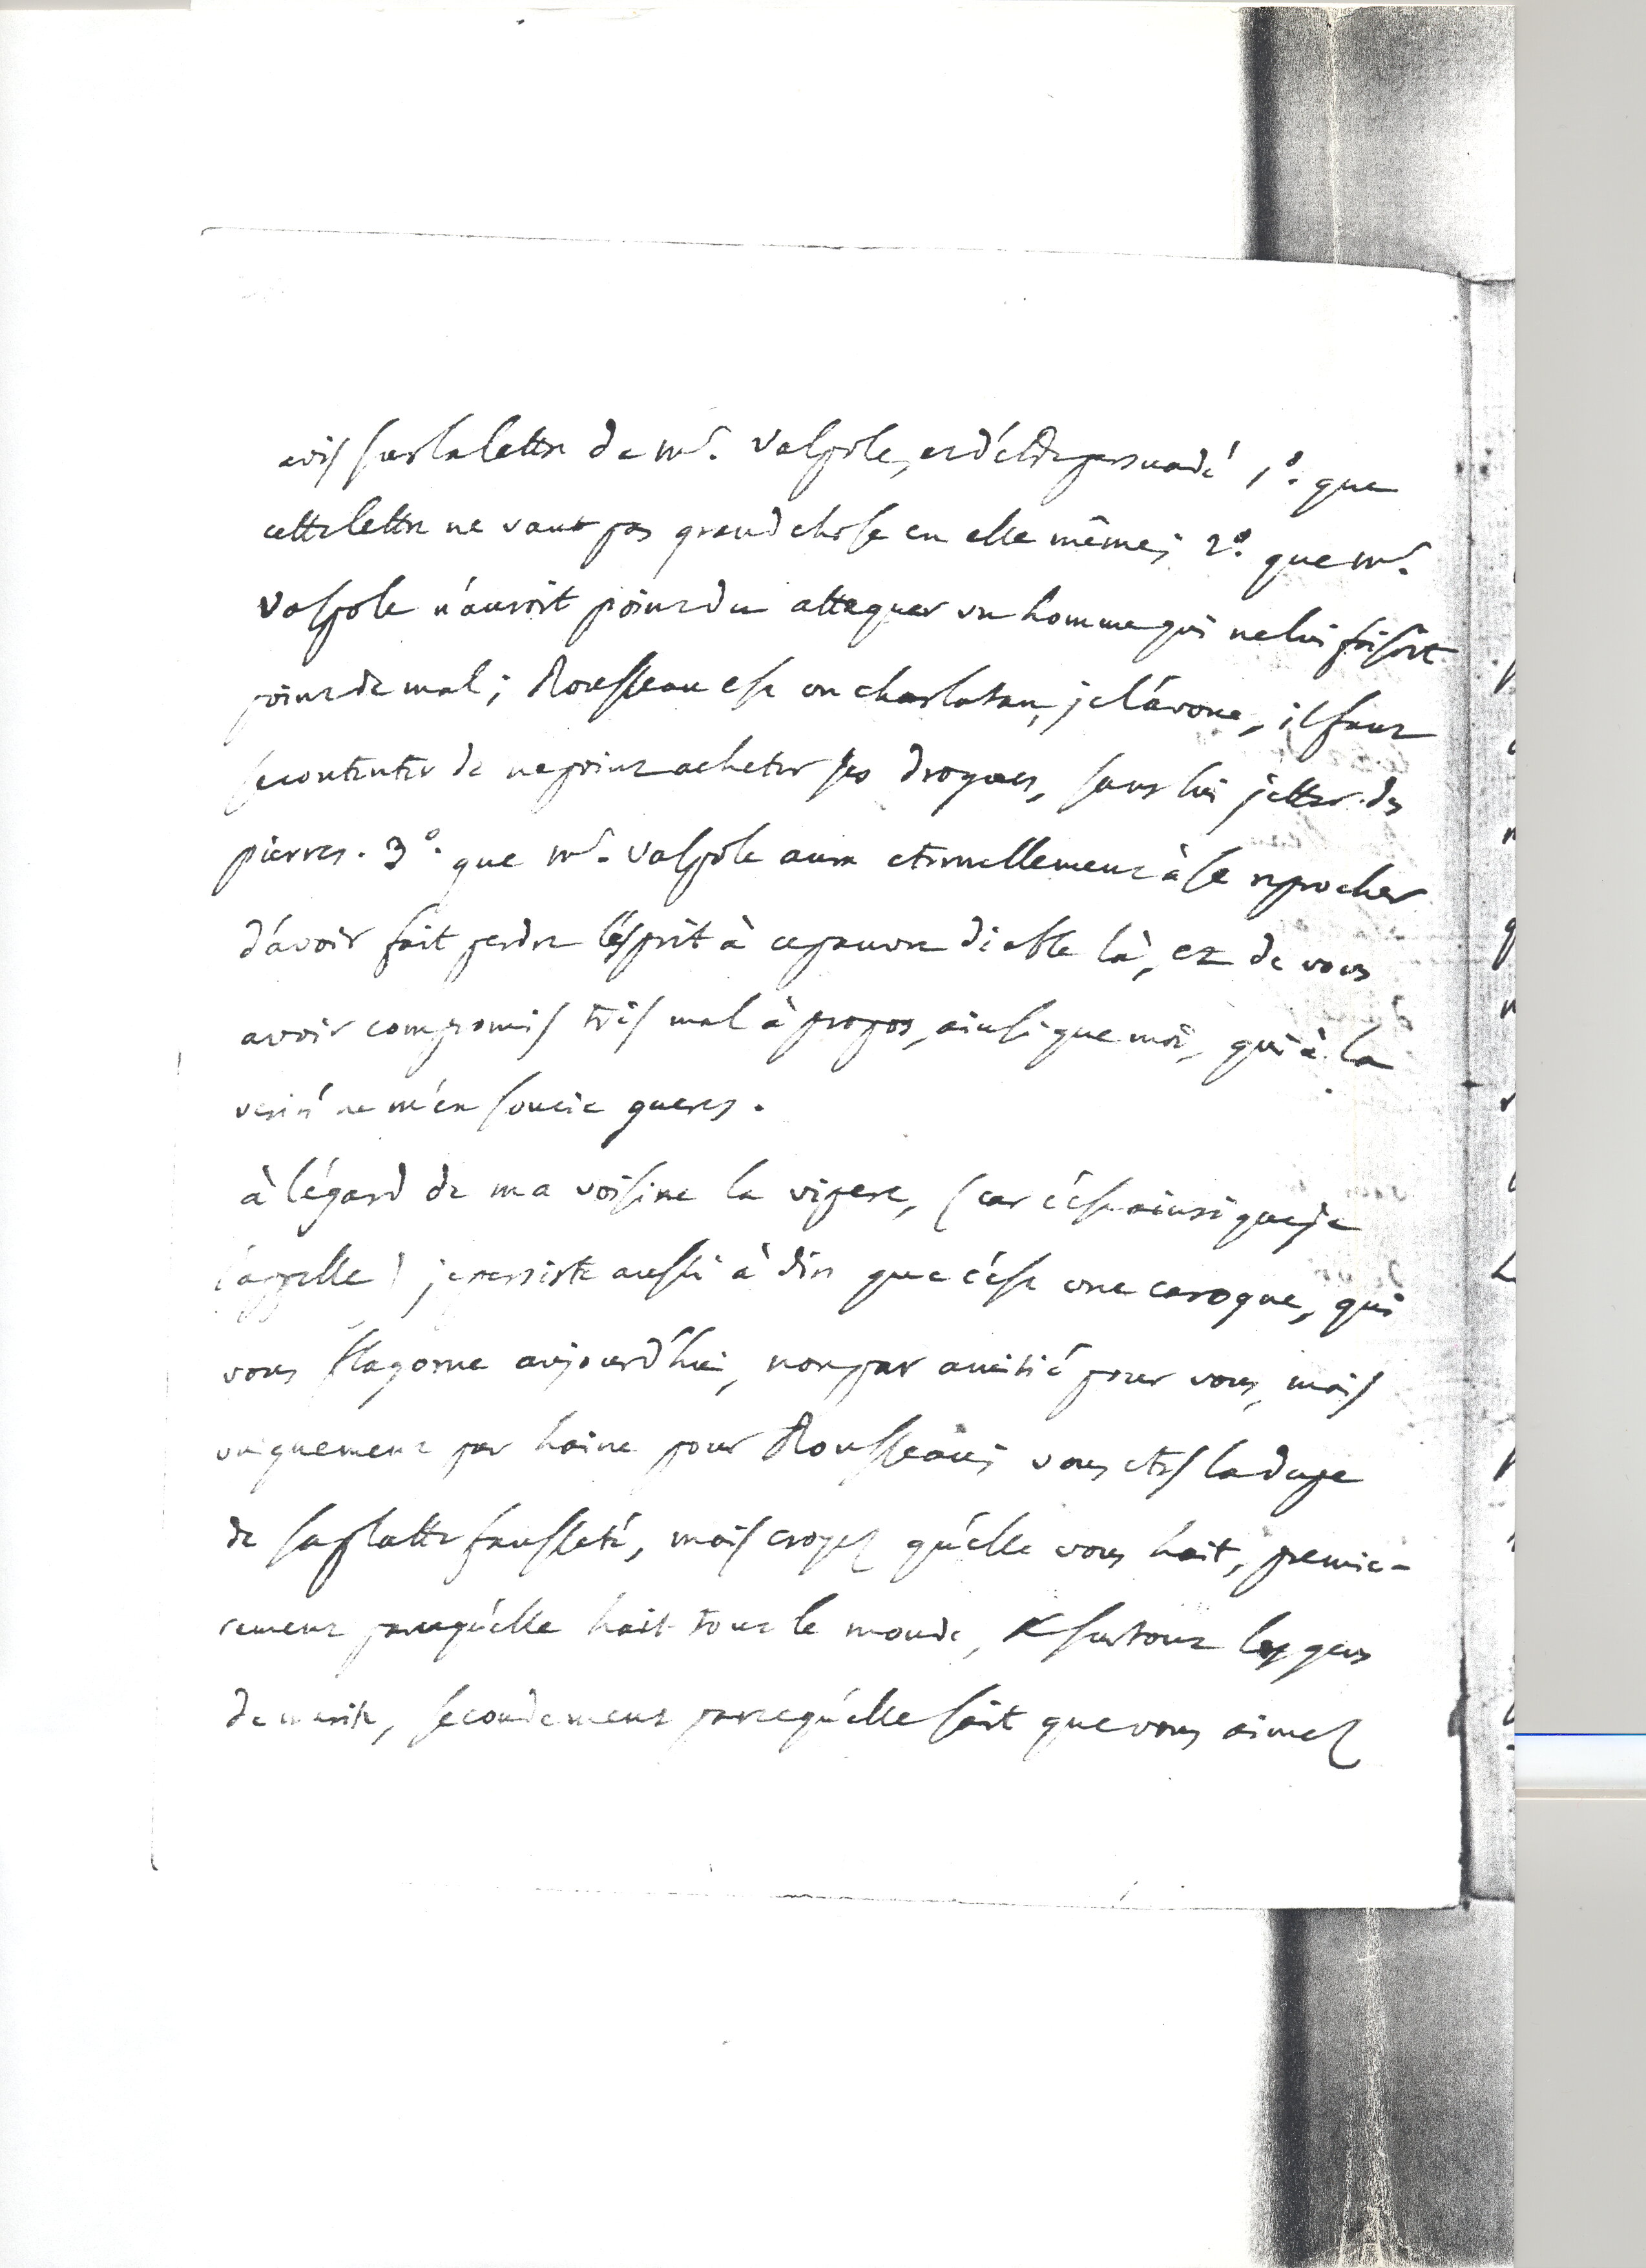 avis sur la lettre de mr. Valpole, et d'être persuadé 1°. que
cette lettre ne vaut pas grand chose en elle même; 2°. que mr.
Valpole n'auroit point du attaquer un homme qui ne lui faisoit
point de mal; Rousseau est un charlatan, je l'avoue, il faut
se contenter de ne point acheter ses drogues, sans lui jetter des
pierres. 3°. que mr. Valpole aura eternellement à se reprocher
d'avoir fait perdre l'esprit à ce pauvre diable là, et de vous
avoir compromis très mal à propos, ainsi que moi, qui à la
verité ne m'en soucie gueres.
à l'égard de ma voisine la vipere, (car c'est ainsi que je
l'appelle) je persiste aussi à dire que c'est une carogne, qui
vous flagorne aujourd'hui, non par amitié pour vous, mais
uniquement par haine pour Rousseau; vous etes la dupe
de sa platte fausseté, mais croyez qu'elle vous hait, premie-
rement parcequ'elle hait tout le monde, & surtout les gens
de merite, secondement parcequ'elle sait que vous aimez